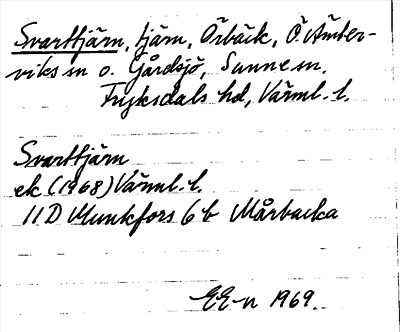 Svarttjärn, tjärn, Örbäck, Ö. Ämter-
viks sn o. Gårdsjö, Sunne sn,
Fryksdals hd, Värml. l.
Svarttjärn
ek (1968) Värml. l.
11D Munkfors 6 b Mårbacka
EE-n 1969.